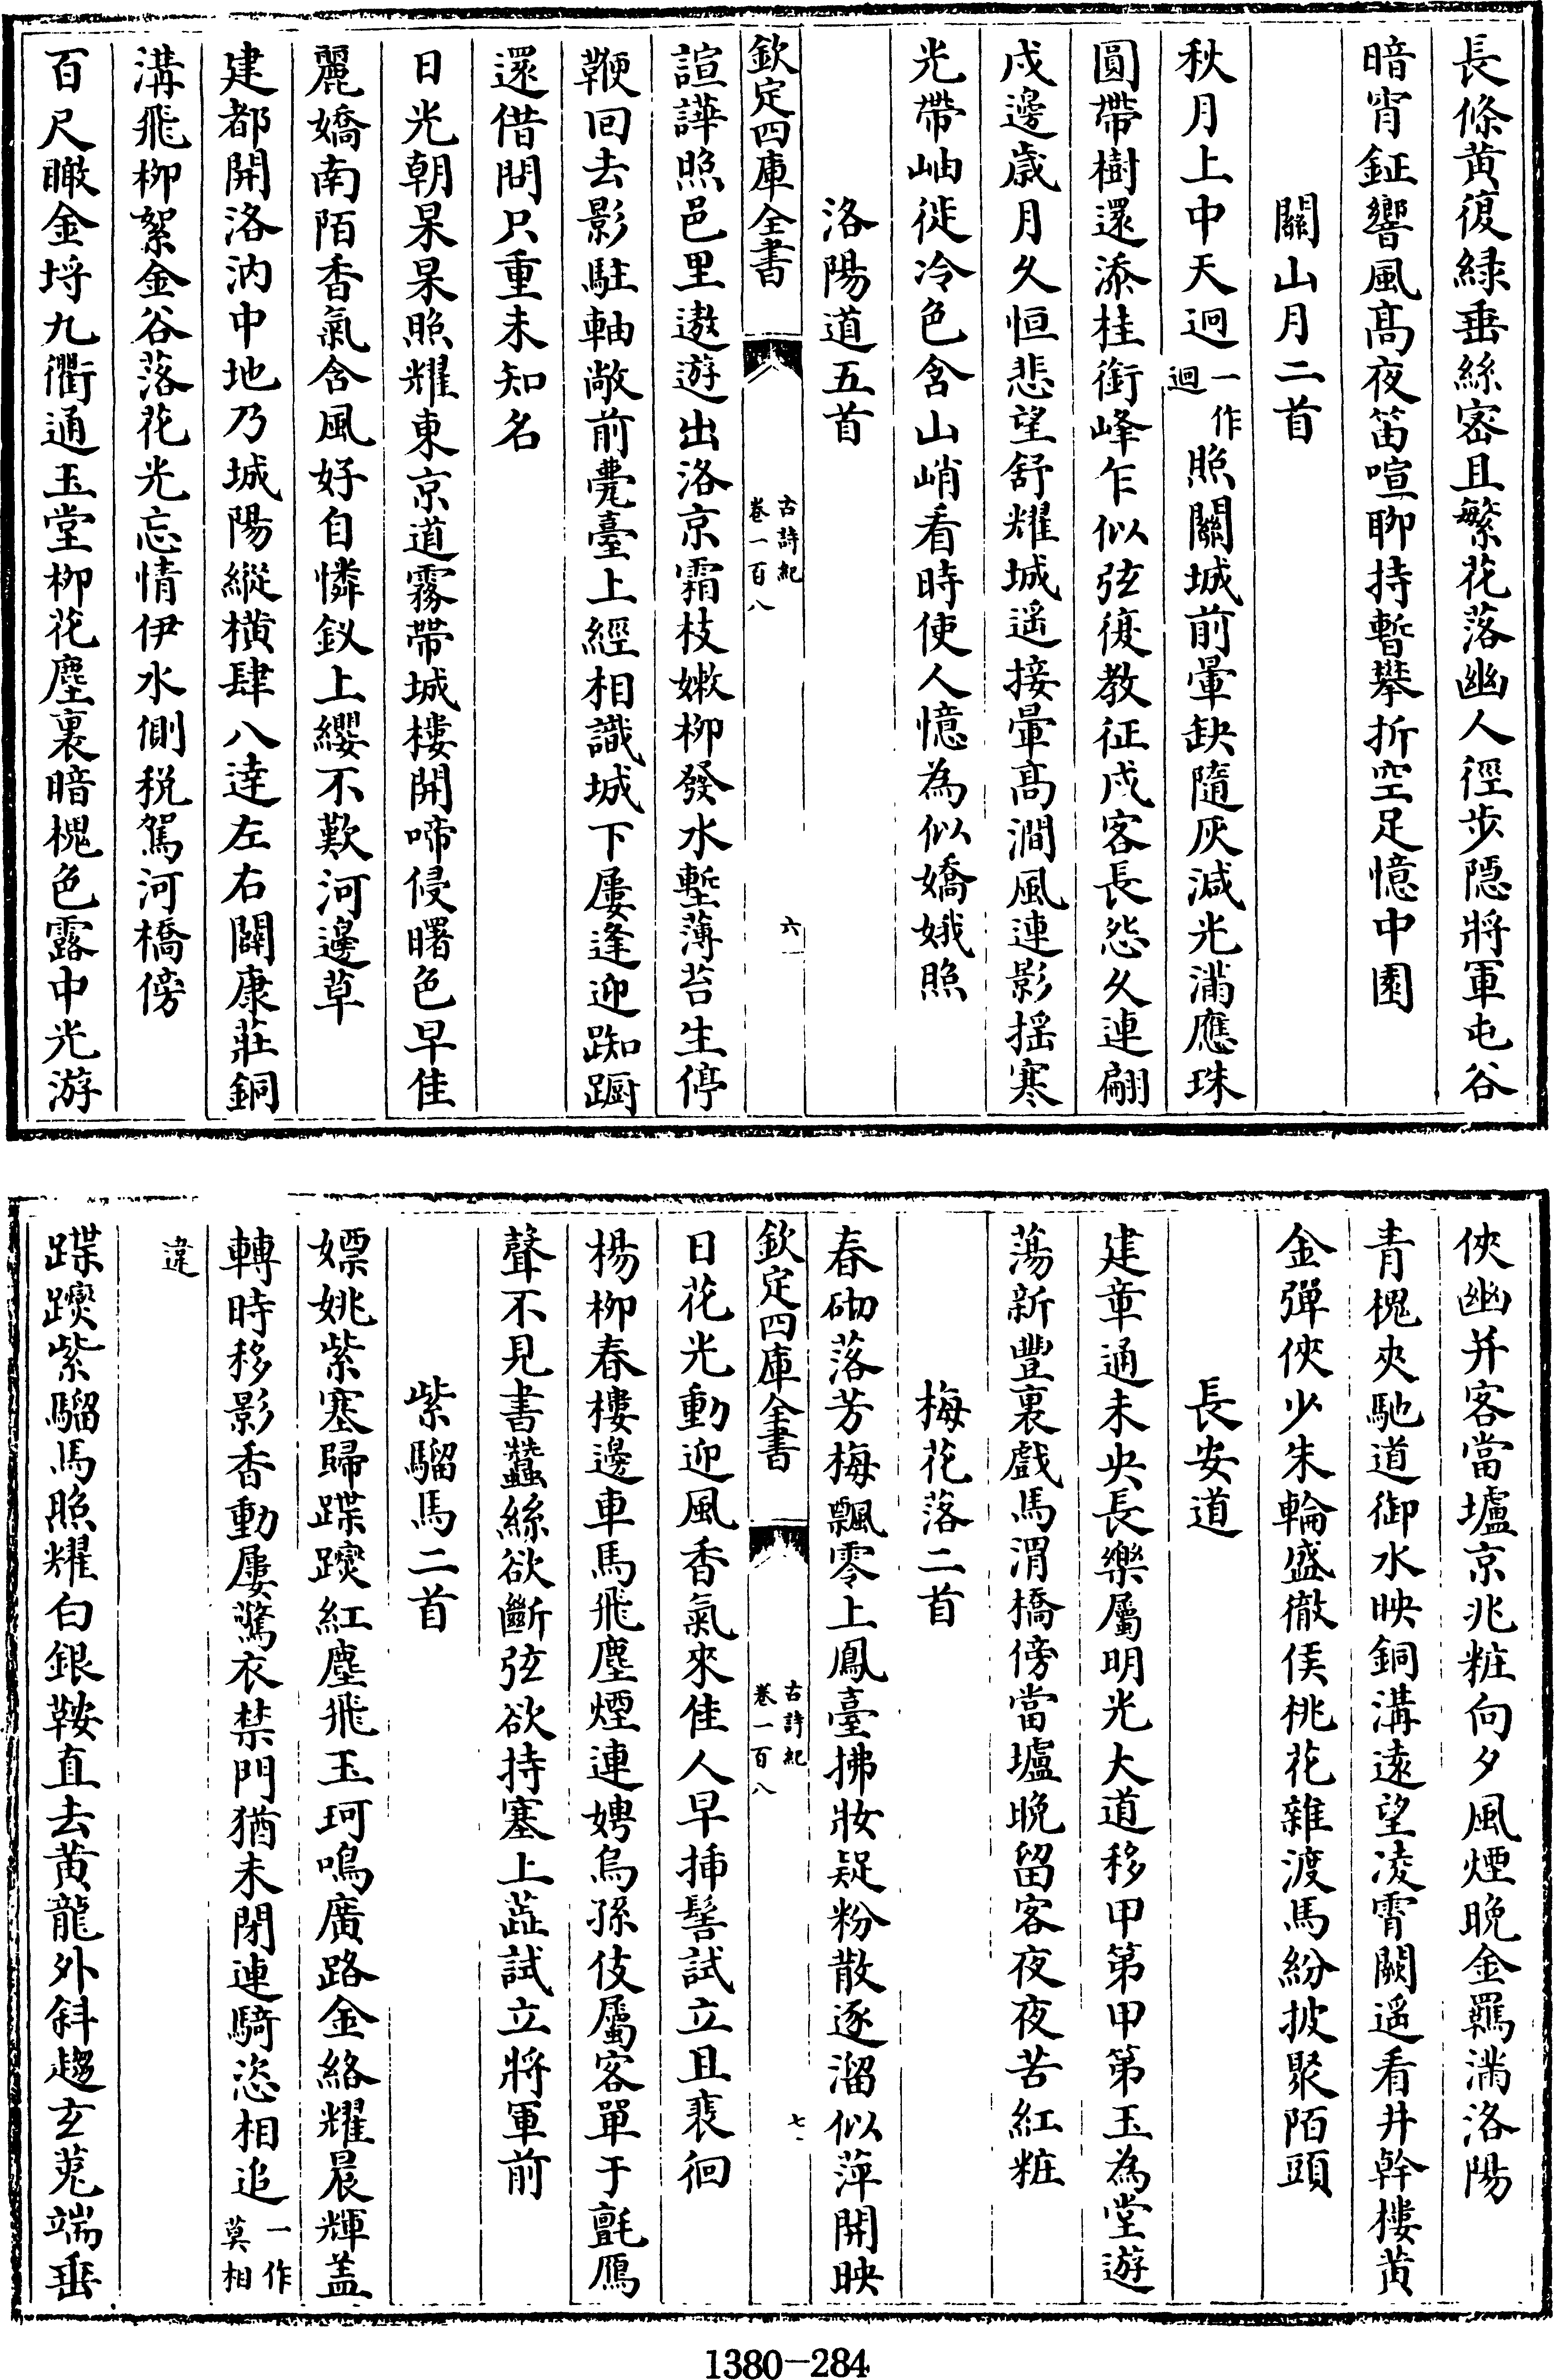 長條黄復緑垂絲密且繁花落幽人徑步隠將軍屯谷
暗宵鉦響風髙夜笛喧聊持暫攀折空足憶中園
關山月二首
秋月上中天迥一作迴照關城前暈缺隨灰減光滿應珠
圓帶樹還添桂銜峰乍似弦復教征戍客長怨久連翩
戍邊歲月久恒悲望舒耀城遥接暈髙澗風連影揺寒
光帶岫徙冷色含山峭看時使人憶為似嬌娥照
洛陽道五首
欽定四庫全書
古詩紀
卷一百八
六
諠譁照邑里遨遊出洛京霜枝嫩柳發水塹薄苔生停
鞭回去影駐軸敞前甍臺上經相識城下屢逢迎踟蹰
還借問只重未知名
日光朝杲杲照耀東京道霧帶城樓開啼侵曙色早佳
麗嬌南陌香氣含風好自憐釵上纓不歎河邊草
建都開洛汭中地乃城陽縱横肆八逹左右闢康莊銅
溝飛柳絮金谷落花光忘情伊水側税駕河橋傍
百尺瞰金埒九衢通玉堂柳花塵裏暗槐色露中光游
俠幽并客當壚京兆粧向夕風煙晩金羈滿洛陽
青槐夾馳道御水映銅溝遠望凌霄闕遥看井幹樓黄
金彈俠少朱輪盛徹侯桃花雜渡馬紛披聚陌頭
長安道
建章通未央長樂屬明光大道移甲第甲第玉為堂遊
蕩新豐裏戲馬渭橋傍當壚晩留客夜夜苦紅粧
梅花落二首
春砌落芳梅飄零上鳳臺拂妝疑粉散逐溜似萍開映
欽定四庫全書
古詩紀
卷一百八
七
日花光動迎風香氣來佳人早揷髻試立且裴徊
楊柳春樓邊車馬飛塵煙連娉烏孫伎屬客單于氈鴈
聲不見書蠶絲欲斷弦欲持塞上蕋試立將軍前
紫騮馬二首
嫖姚紫塞歸蹀躞紅塵飛玉珂鳴廣路金絡耀晨輝盖
轉時移影香動屢驚衣禁門猶未閉連騎恣相追一作莫相
違
蹀躞紫騮馬照耀白銀鞍直去黄龍外斜趨玄菟端垂
1380—284